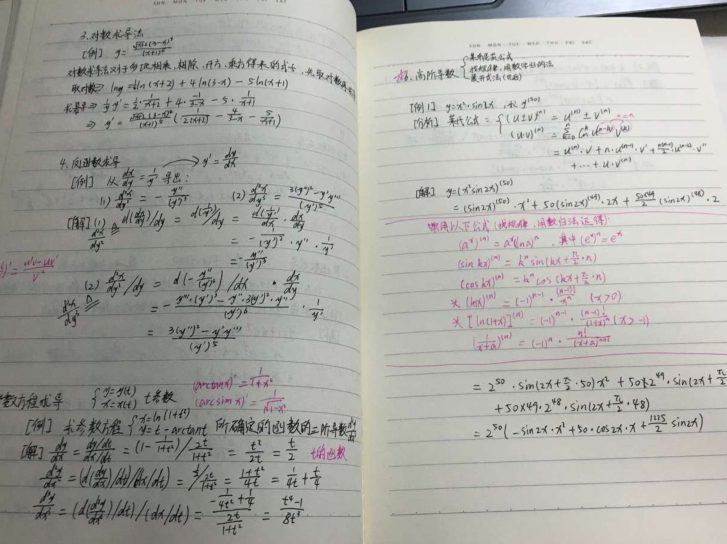 SUN MON TUE WED THU FRI SAT
3.对数求导法
[例] y=
对数求导法对于多项相乘、相除、开方、乘方得来的式子,先取对数
取对数⇒ lny=½ln(x+2)+4ln(3-x)-5ln(x+1)
求导⇒ 1/y·y'=1/2·1/(x+2)+4·(-1)/(3-x)-5·1/(x+1)
⇒ y'=(1/(2(x+2))-4/(3-x)-5/(x+1))
4.反函数求导 y'=dy/dx
[例] 从dx/dy=1/y'导出:
(1) d²x/dy²=-y''/(y')³ (2) d³x/dy³=(3(y'')²-y'y''')/(y')⁵
[解](1) d²x/dy²=d(dx/dy)/dy=d(1/y')/dy=d(1/y')/dx·dx/dy
=-y''/(y')²·1/y'
=-y''/(y')³
(2) d³x/dy³=d(-y''/(y')³)/dx·dx/dy
=·1/y'
=(3(y'')²-y'y''')/(y')⁵
数方程求导 {y=y(t) x=x(t) t参数
(arctanx)'=
(arcsinx)'=
[例] 求参数方程{x=ln(1+t²) y=t-arctant 所确定的函数的二阶导数
[解] dy/dx=(dy/dt)/(dx/dt)=(1-1/(1+t²))/(2t/(1+t²))=t²/2t=t/2 t的函数
d²y/dx²=(d(dy/dx)/dt)/(dx/dt)=½/(2t/(1+t²))=(1+t²)/4t=1/4t+t/4
d³y/dx³=(d(d²y/dx²)/dt)/(dx/dt)=(-1/4t²+1/4)/(2t/(1+t²))=(t⁴-1)/8t³
SUN MON TUE WED THU FRI SAT
高阶导数{莱布尼茨公式
找规律,用数学归纳法
展开式法
[例1] y=x²·sin2x 求y⁽⁵⁰⁾
[分析] 莱氏公式={(u±v)⁽ⁿ⁾=u⁽ⁿ⁾±v⁽ⁿ⁾
(u·v)⁽ⁿ⁾=
=u⁽ⁿ⁾·v+n·u⁽ⁿ⁻¹⁾·v'+n(n-1)/2·u⁽ⁿ⁻²⁾·v''
+…+u·v⁽ⁿ⁾
[解] y=(x²sin2x)⁽⁵⁰⁾
=(sin2x)⁽⁵⁰⁾·x²+50(sin2x)⁽⁴⁹⁾·2x+50×49/2(sin2x)⁽⁴⁸⁾·2
常用以下公式(找规律,用数学归纳法得):
(aˣ)⁽ⁿ⁾=aˣ(lna)ⁿ,其中(eˣ)ⁿ=eˣ
(sinkx)⁽ⁿ⁾=kⁿsin(kx+π/2·n)
(coskx)⁽ⁿ⁾=kⁿcos(kx+π/2·n)
※(lnx)⁽ⁿ⁾=(-1)ⁿ⁻¹·(n-1)!/xⁿ (x>0)
※[ln(1+x)]⁽ⁿ⁾=(-1)ⁿ⁻¹·(n-1)!/(1+x)ⁿ (x>-1)
(1/(x+a))⁽ⁿ⁾=(-1)ⁿ·n!/(x+a)ⁿ⁺¹
=2⁵⁰·sin(2x+π/2·50)x²+50×2⁴⁹·sin(2x+π/2
+50×49·2⁴⁸·sin(2x+π/2·48)
=2⁵⁰(-sin2x·x²+50·cos2x·x+1225/2 sin2x)